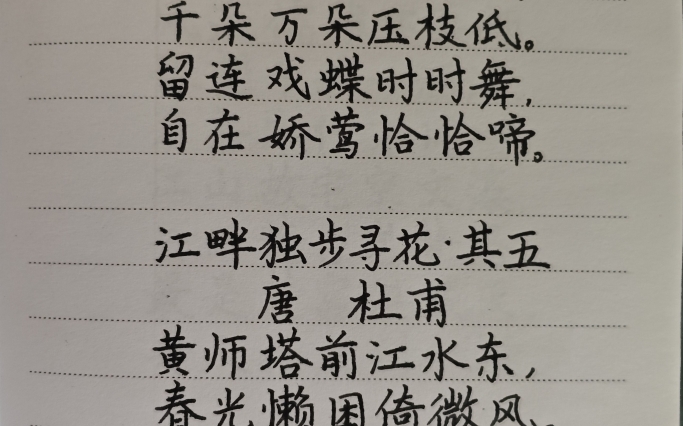 千朵万朵压枝低。
留连戏蝶时时舞,
自在娇莺恰恰啼。
江畔独步寻花·其五
唐 杜甫
黄师塔前江水东,
春光懒困倚微风。